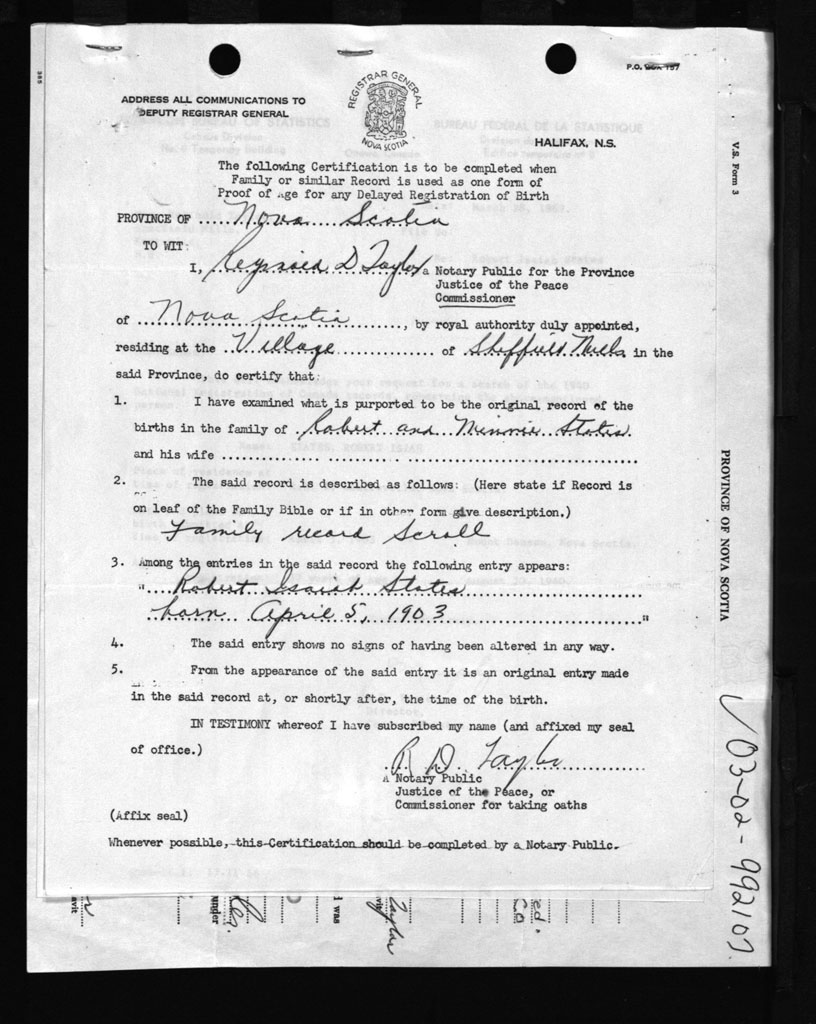 P.O. BOX 157
REGISTRAR GENERAL
NOVA SCOTIA
ADDRESS ALL COMMUNICATIONS TO
DEPUTY REGISTRAR GENERAL
HALIFAX, N.S.
The following Certification is to be completed when
Family or similar Record is used as one form of
Proof of Age for any Delayed Registration of Birth
PROVINCE OF Nova Scotia
TO WIT:
I, Reginald D Taylor a Notary Public for the Province
Justice of the Peace
Commissioner
of Nova Scotia, by royal authority duly appointed,
residing at the Village of Sheffield Mills in the
said Province, do certify that:
1. I have examined what is purported to be the original record of the
births in the family of Robert and Minnie States
and his wife
2. The said record is described as follows: (Here state if Record is
on leaf of the Family Bible or if in other form give description.)
Family record Scroll
3. Among the entries in the said record the following entry appears:
" Robert Isaiah States
born April 5, 1903 "
4. The said entry shows no signs of having been altered in any way.
5. From the appearance of the said entry it is an original entry made
in the said record at, or shortly after, the time of the birth.
IN TESTIMONY whereof I have subscribed my name (and affixed my seal
of office.)
R D Taylor
A Notary Public
Justice of the Peace, or
Commissioner for taking oaths
(Affix seal)
Whenever possible, this Certification should be completed by a Notary Public.
V.S. Form 3
PROVINCE OF NOVA SCOTIA
03-02-992107
385
under
I was
Taylor